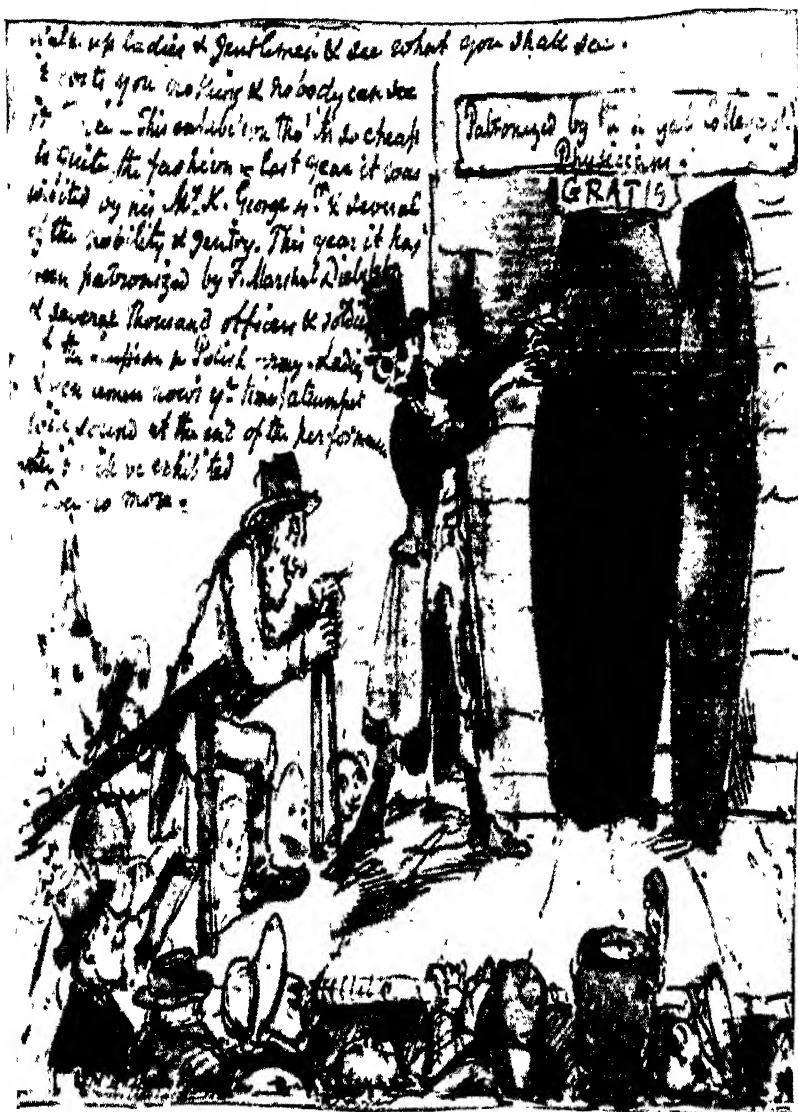 Walk up ladies & Gentlemen & see what you shall see.
It costs you nothing & nobody can see
it - This exhibition tho' its so cheap
is quite the fashion & last year it was
visited by his M. K. George 4th & several
of the nobility & gentry. This year it has
been patronized by F. Marshal Diebitch
& several thousand officers & soldiers
of the Russian & Polish army. Ladies
now's yr time a trumpet
will sound at the end of the performance
exhibited
no more.
Patronized by the Royal College of
Physicians.
GRATIS